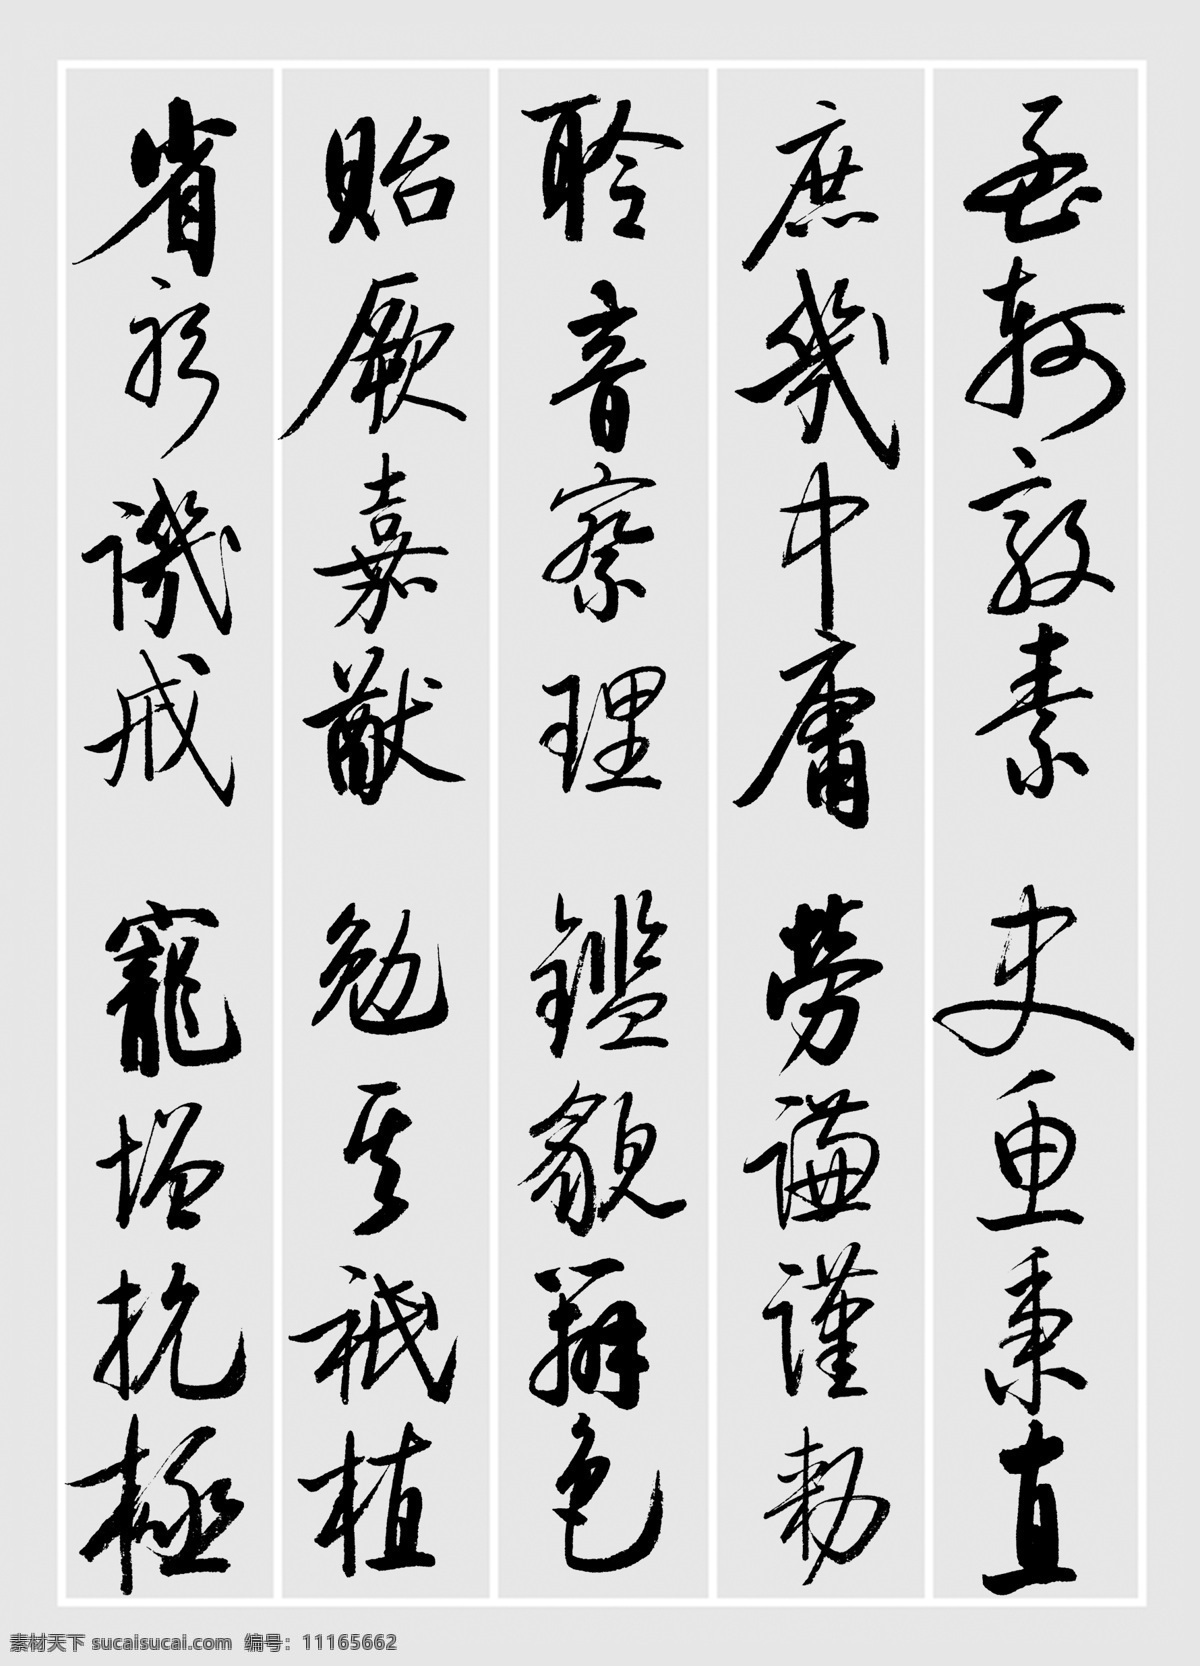 孟轲敦素 史鱼秉直
庶幾中庸 劳謙謹勅
聆音察理 鑑貌辨色
貽厥嘉猷 勉其祗植
省躬譏戒 寵增抗極
素材天下 sucaisucai.com 编号：11165662